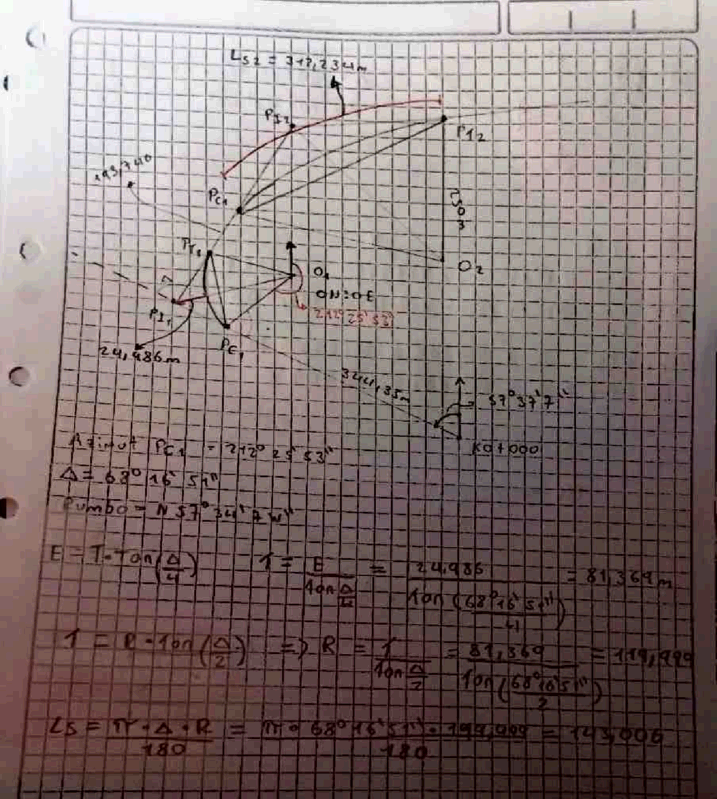 Ls2 = 317,234m
PI2
PT2
193,740
PC2
PT1
O1
O2
ON:OE
212° 25' 53"
PI1
PC1
24,486m
344,35m
57° 34' 7"
K0+000
Azimut PC1 = 212° 25' 53"
Δ = 68° 16' 51"
Rumbo = N 57° 34' 7" W
E = T * Tan(Δ/4) T = E / Tan Δ/4 = 24,486 / Tan(68° 16' 51" / 4) = 81,369 m
T = R * Tan(Δ/2) => R = T / Tan Δ/2 = 81,369 / Tan(68° 16' 51" / 2) = 119,999
Ls = π * Δ * R / 180 = π * 68° 16' 51" * 119,999 / 180 = 143,006